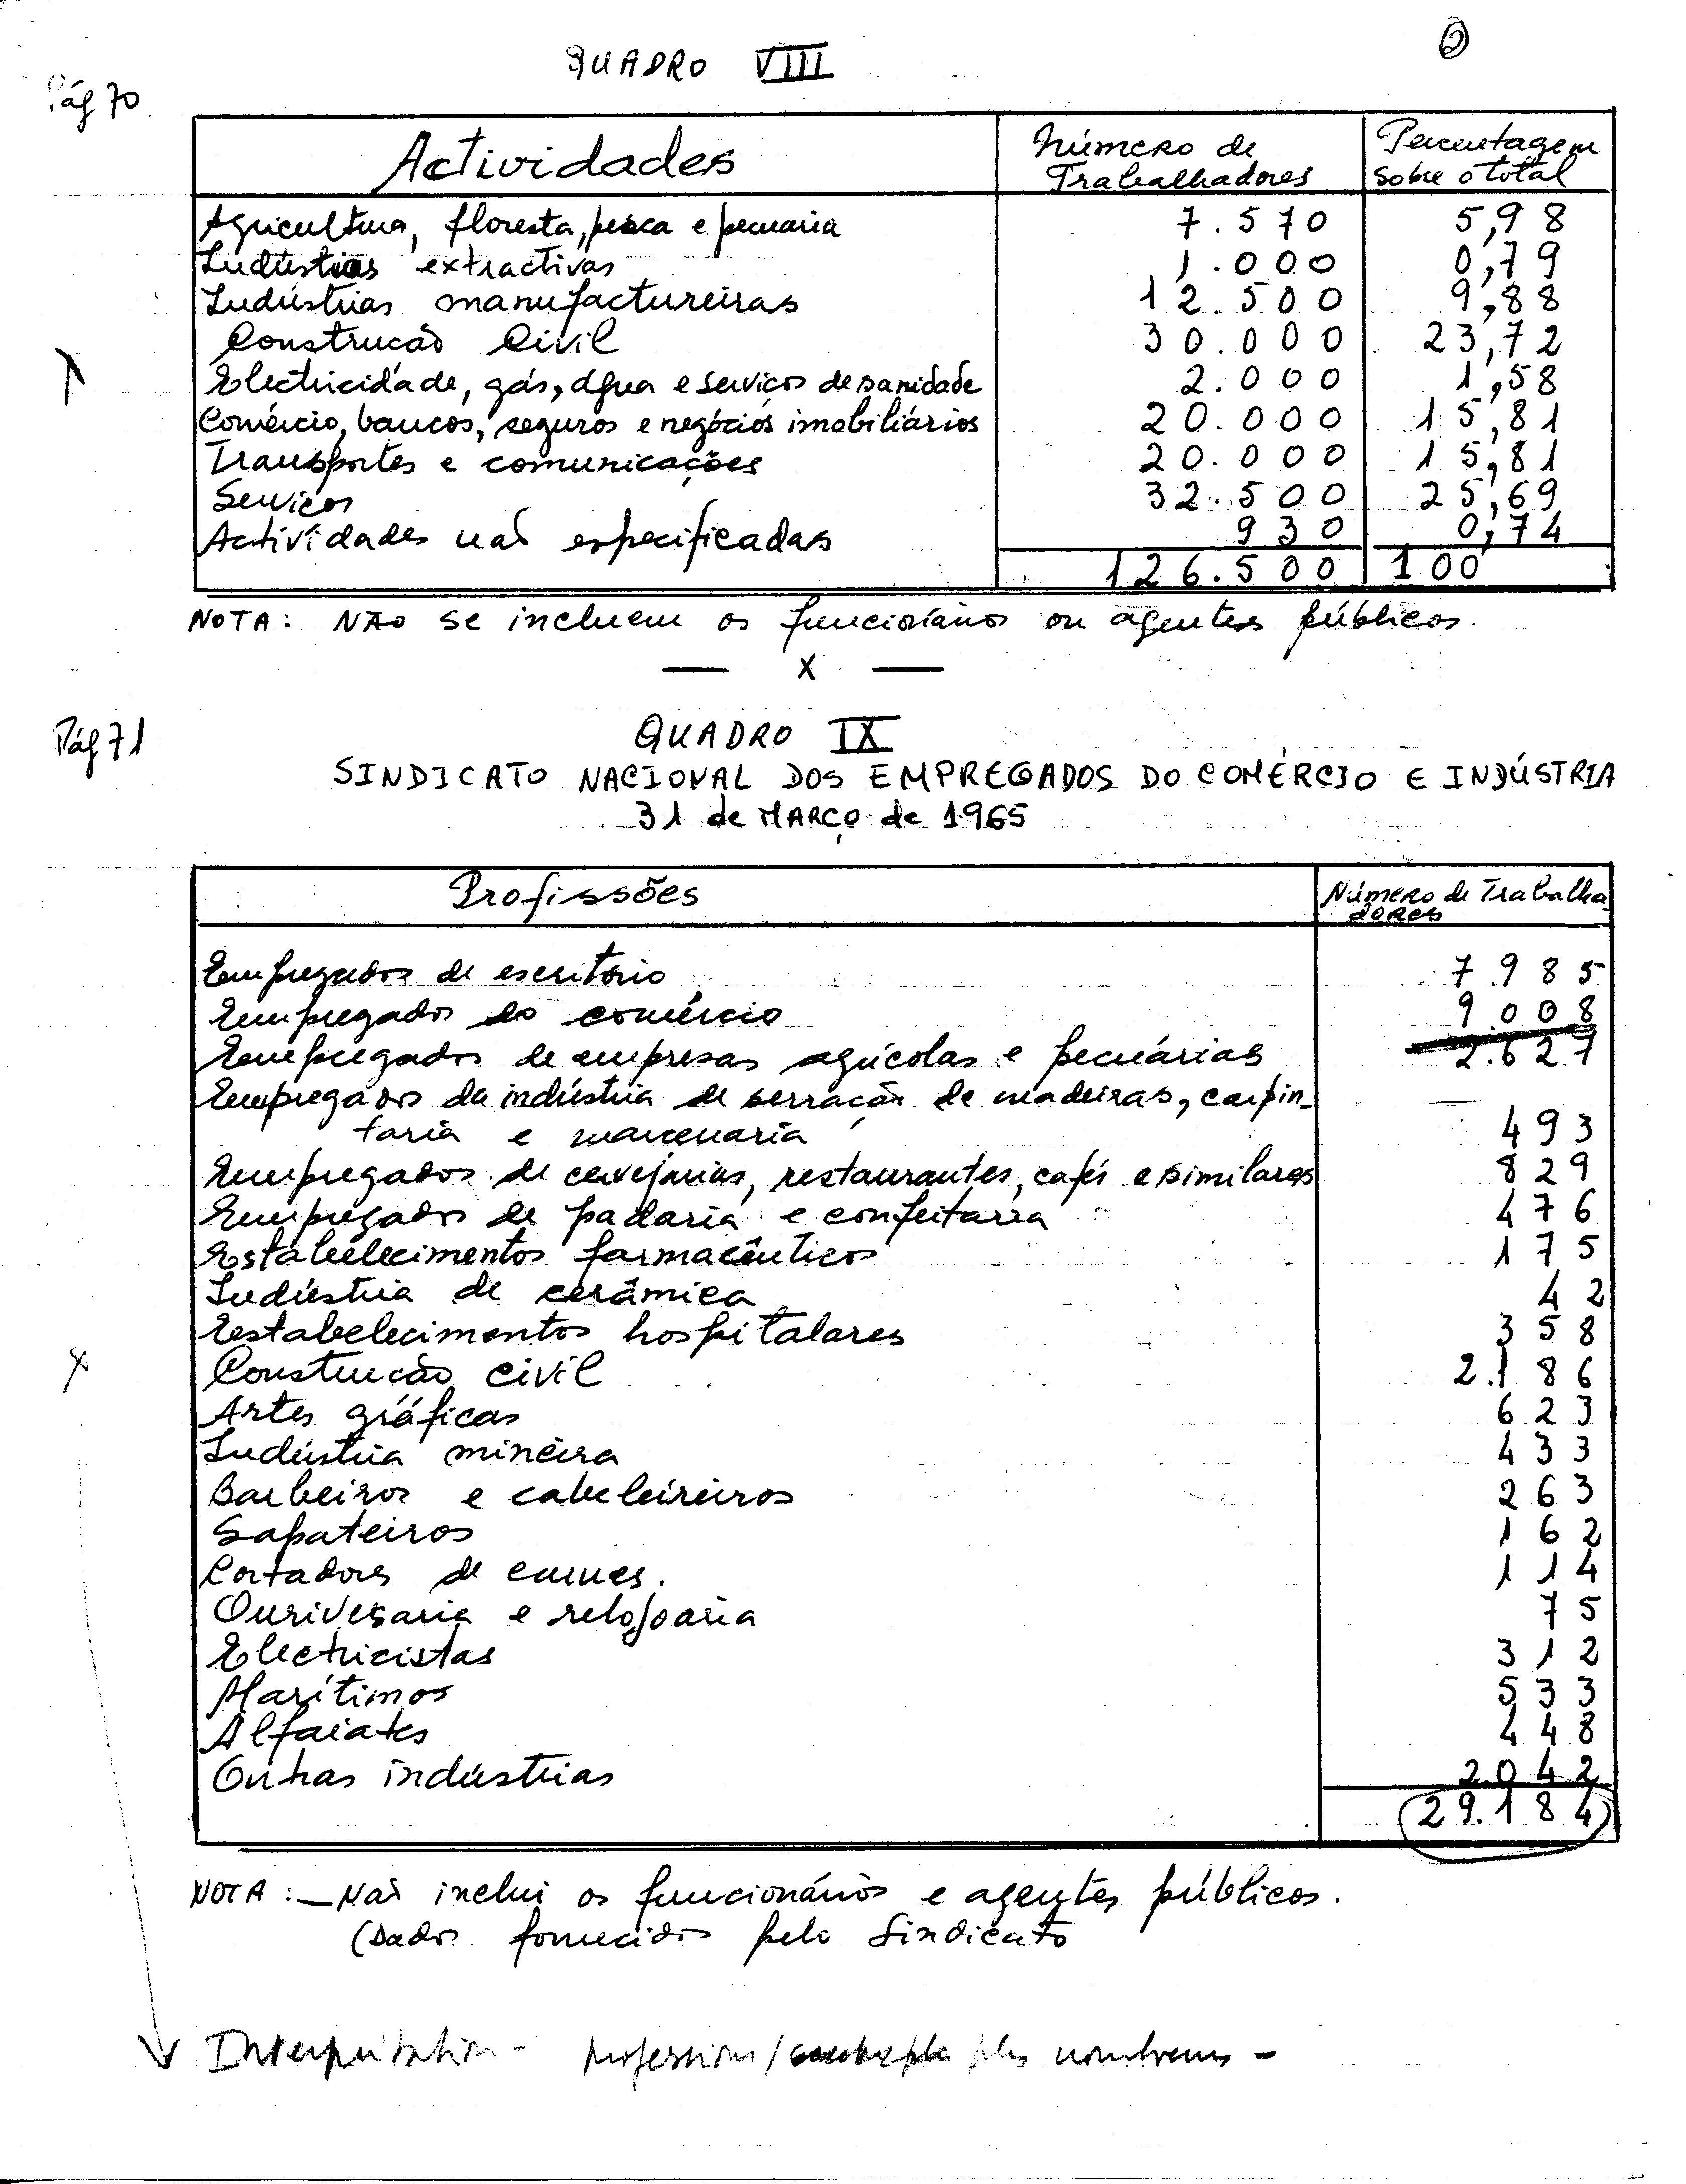 QUADRO VIII
Pág 70
Actividades Número de Trabalhadores Percentagem sobre o total
Agricultura, floresta, pesca e pecuária 7.570 5,98
Indústrias extractivas 1.000 0,79
Indústrias manufactureiras 12.500 9,88
Construcão Civil 30.000 23,72
Electricidade, gás, água e serviços de sanidade 2.000 1,58
Comércio, bancos, seguros e negócios imobiliários 20.000 15,81
Transportes e comunicações 20.000 15,81
Serviços 32.500 25,69
Actividades não especificadas 930 0,74
126.500 100
NOTA: NÃO se incluem os funcionários ou agentes públicos.
— X —
Pág 71
QUADRO IX
SINDICATO NACIONAL DOS EMPREGADOS DO COMÉRCIO E INDÚSTRIA
31 de MARÇO de 1965
Profissões Número de Trabalhadores
Empregados de escritório 7.985
Empregados do comércio 9.008
Empregados de empresas agrícolas e pecuárias 2.627
Empregados da indústria de serração de madeiras, carpin-
taria e marcenaria 493
Empregados de cervejarias, restaurantes, cafés e similares 829
Empregados de padaria e confeitaria 476
Estabelecimentos farmacêuticos 175
Indústria de cerâmica 42
Estabelecimentos hospitalares 358
Construcão civil 2.186
Artes gráficas 623
Indústria mineira 433
Barbeiros e cabeleireiros 263
Sapateiros 162
Cortadores de carnes. 114
Ourivesaria e relojoaria 75
Electricistas 312
Marítimos 533
Alfaiates 448
Outras indústrias 2.042
29.184
NOTA: — Não inclui os funcionários e agentes públicos.
(Dados fornecidos pelo Sindicato
Interprétation - professions / plus nombreux -